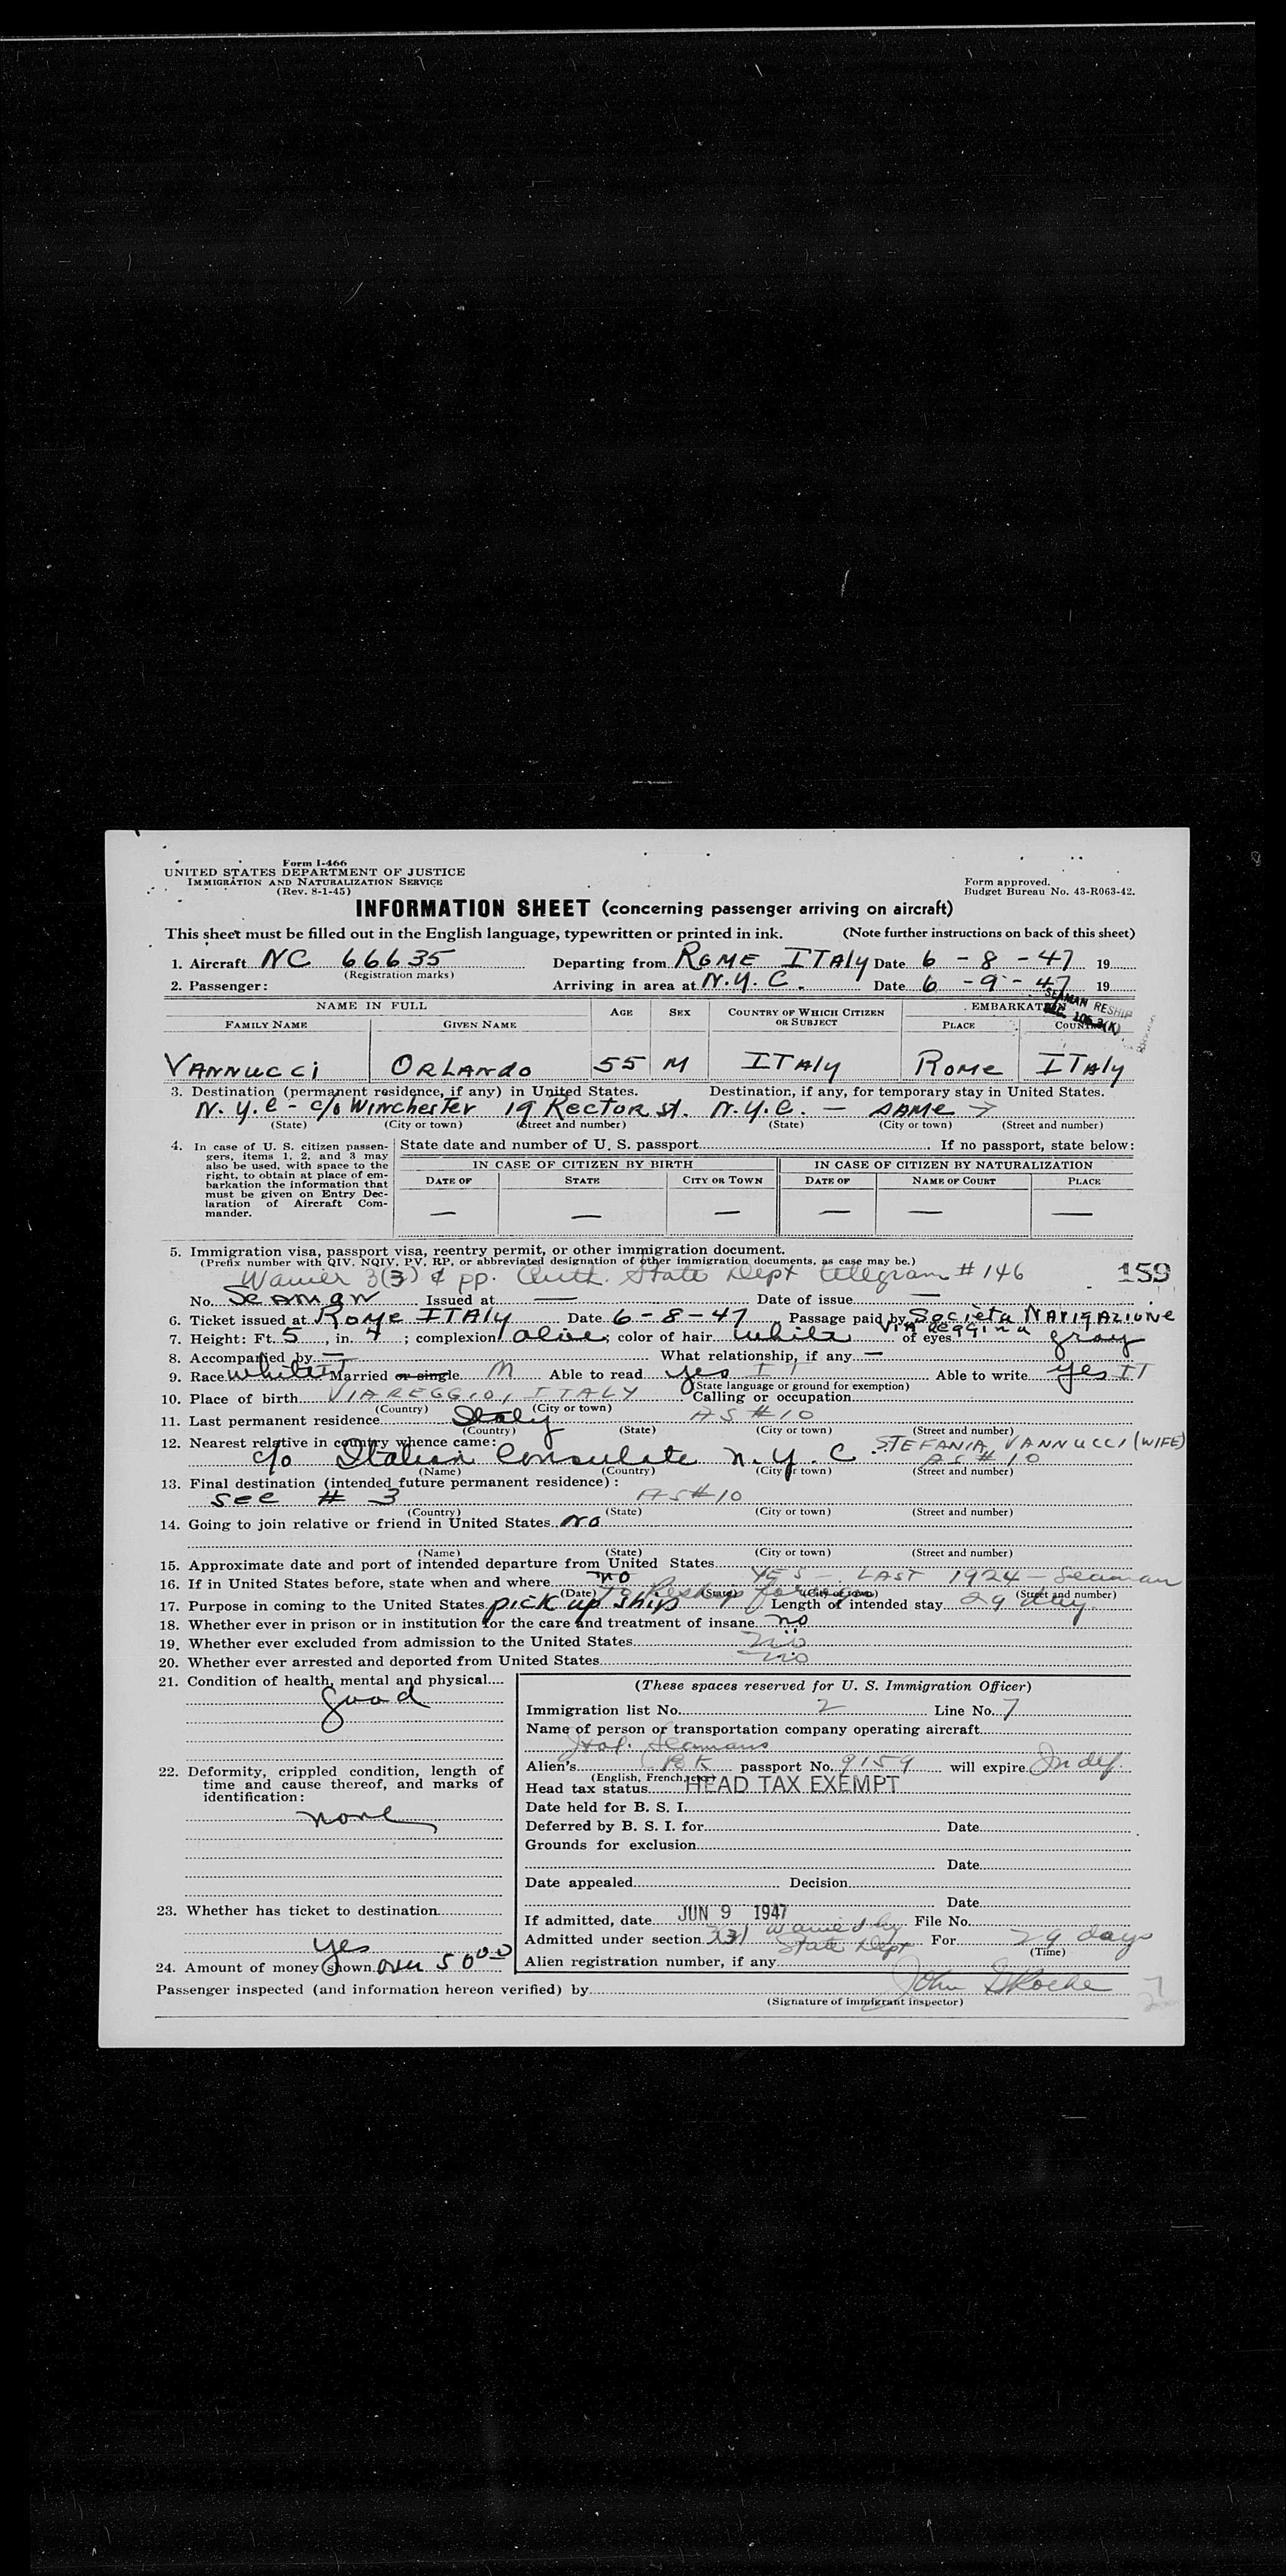 Form I-466
UNITED STATES DEPARTMENT OF JUSTICE
IMMIGRATION AND NATURALIZATION SERVICE
(Rev. 8-1-45)
Form approved.
Budget Bureau No. 43-R063-42.
INFORMATION SHEET (concerning passenger arriving on aircraft)
This sheet must be filled out in the English language, typewritten or printed in ink. (Note further instructions on back of this sheet)
1. Aircraft NC 66635 Departing from ROME ITALY Date 6-8-47 19
(Registration marks)
2. Passenger: Arriving in area at N.Y.C. Date 6-9-47 19
SEAMAN RESHIP
SEC. 105.3(K)
NAME IN FULL AGE SEX COUNTRY OF WHICH CITIZEN OR SUBJECT EMBARKATION
FAMILY NAME GIVEN NAME PLACE COUNTRY
VANNUCCI ORLANDO 55 M ITALY ROME ITALY
3. Destination (permanent residence, if any) in United States. Destination, if any, for temporary stay in United States.
N.Y.C - c/o Winchester 19 Rector st. N.Y.C. - SAME
(State) (City or town) (Street and number) (State) (City or town) (Street and number)
4. In case of U. S. citizen passengers, items 1, 2, and 3 may also be used, with space to the right, to obtain at place of embarkation the information that must be given on Entry Declaration of Aircraft Commander.
State date and number of U. S. passport If no passport, state below:
IN CASE OF CITIZEN BY BIRTH IN CASE OF CITIZEN BY NATURALIZATION
DATE OF STATE CITY OR TOWN DATE OF NAME OF COURT PLACE
— — — — — —
5. Immigration visa, passport visa, reentry permit, or other immigration document.
(Prefix number with QIV, NQIV, PV, RP, or abbreviated designation of other immigration documents, as case may be.)
Waiver 3(3) & pp. Auth. State Dept telegram # 146
159
No. Seaman Issued at — Date of issue —
6. Ticket issued at Rome ITALY Date 6-8-47 Passage paid by Società NAVIGAZIONE
7. Height: Ft. 5, in. 4; complexion olive; color of hair white of eyes gray
8. Accompanied by — What relationship, if any —
9. Race white IT Married or single M Able to read yes IT Able to write yes IT
(State language or ground for exemption)
10. Place of birth VIAREGGIO, ITALY Calling or occupation
(Country) (City or town)
11. Last permanent residence Italy AS #10
(Country) (State) (City or town) (Street and number)
12. Nearest relative in country whence came: STEFANIA VANNUCCI (WIFE)
c/o Italian Consulate N.Y.C. AS #10
(Name) (Country) (City or town) (Street and number)
13. Final destination (intended future permanent residence):
see # 3 AS #10
(Country) (State) (City or town) (Street and number)
14. Going to join relative or friend in United States no
(Name) (State) (City or town) (Street and number)
15. Approximate date and port of intended departure from United States
16. If in United States before, state when and where no YES - LAST 1924 - Seaman
(Date) (State) (City or town) (Street and number)
17. Purpose in coming to the United States pick up ship To Reship Length of intended stay 29 day
18. Whether ever in prison or in institution for the care and treatment of insane no
19. Whether ever excluded from admission to the United States no
20. Whether ever arrested and deported from United States no
21. Condition of health, mental and physical
good
22. Deformity, crippled condition, length of time and cause thereof, and marks of identification:
none
23. Whether has ticket to destination
yes
24. Amount of money shown over 50 00
(These spaces reserved for U. S. Immigration Officer)
Immigration list No. 2 Line No. 7
Name of person or transportation company operating aircraft
Ital. Seamans
Alien's BK passport No. 9159 will expire Indef.
(English, French, etc.)
Head tax status HEAD TAX EXEMPT
Date held for B. S. I.
Deferred by B. S. I. for Date
Grounds for exclusion
Date
Date appealed Decision
Date
If admitted, date JUN 9 1947 File No.
Admitted under section 3(3) Waived by State Dept For 29 days
(Time)
Alien registration number, if any
Passenger inspected (and information hereon verified) by John Roche
(Signature of immigrant inspector)